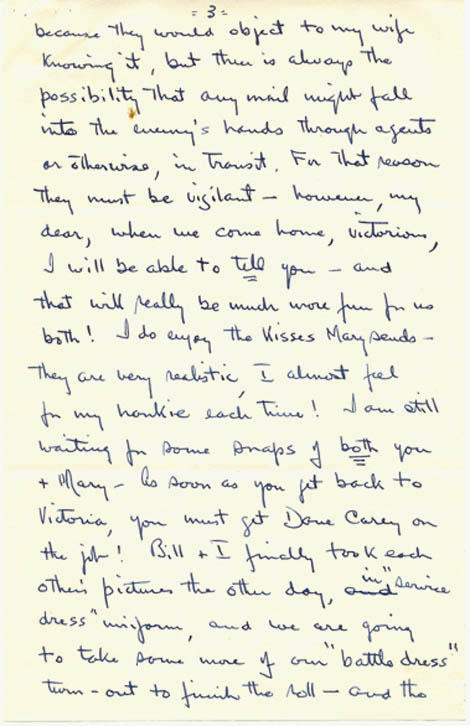 = 3 =
because they would object to my wife
knowing it, but there is always the
possibility that any mail might fall
into the enemy's hands through agents
or otherwise, in transit. For that reason
they must be vigilant – however, my
dear, when we come home, victorious,
I will be able to tell you – and
that will really be much more fun for us
both! I do enjoy the kisses Mary sends –
they are very realistic, I almost feel
for my hankie each time! I am still
waiting for some snaps of both you
+ Mary – As soon as you get back to
Victoria, you must get Dave Carey on
the job! Bill + I finally took each
other's pictures the other day, and in "service
dress" uniform, and we are going
to take some more of our "battle dress"
turn-out to finish the roll – and the